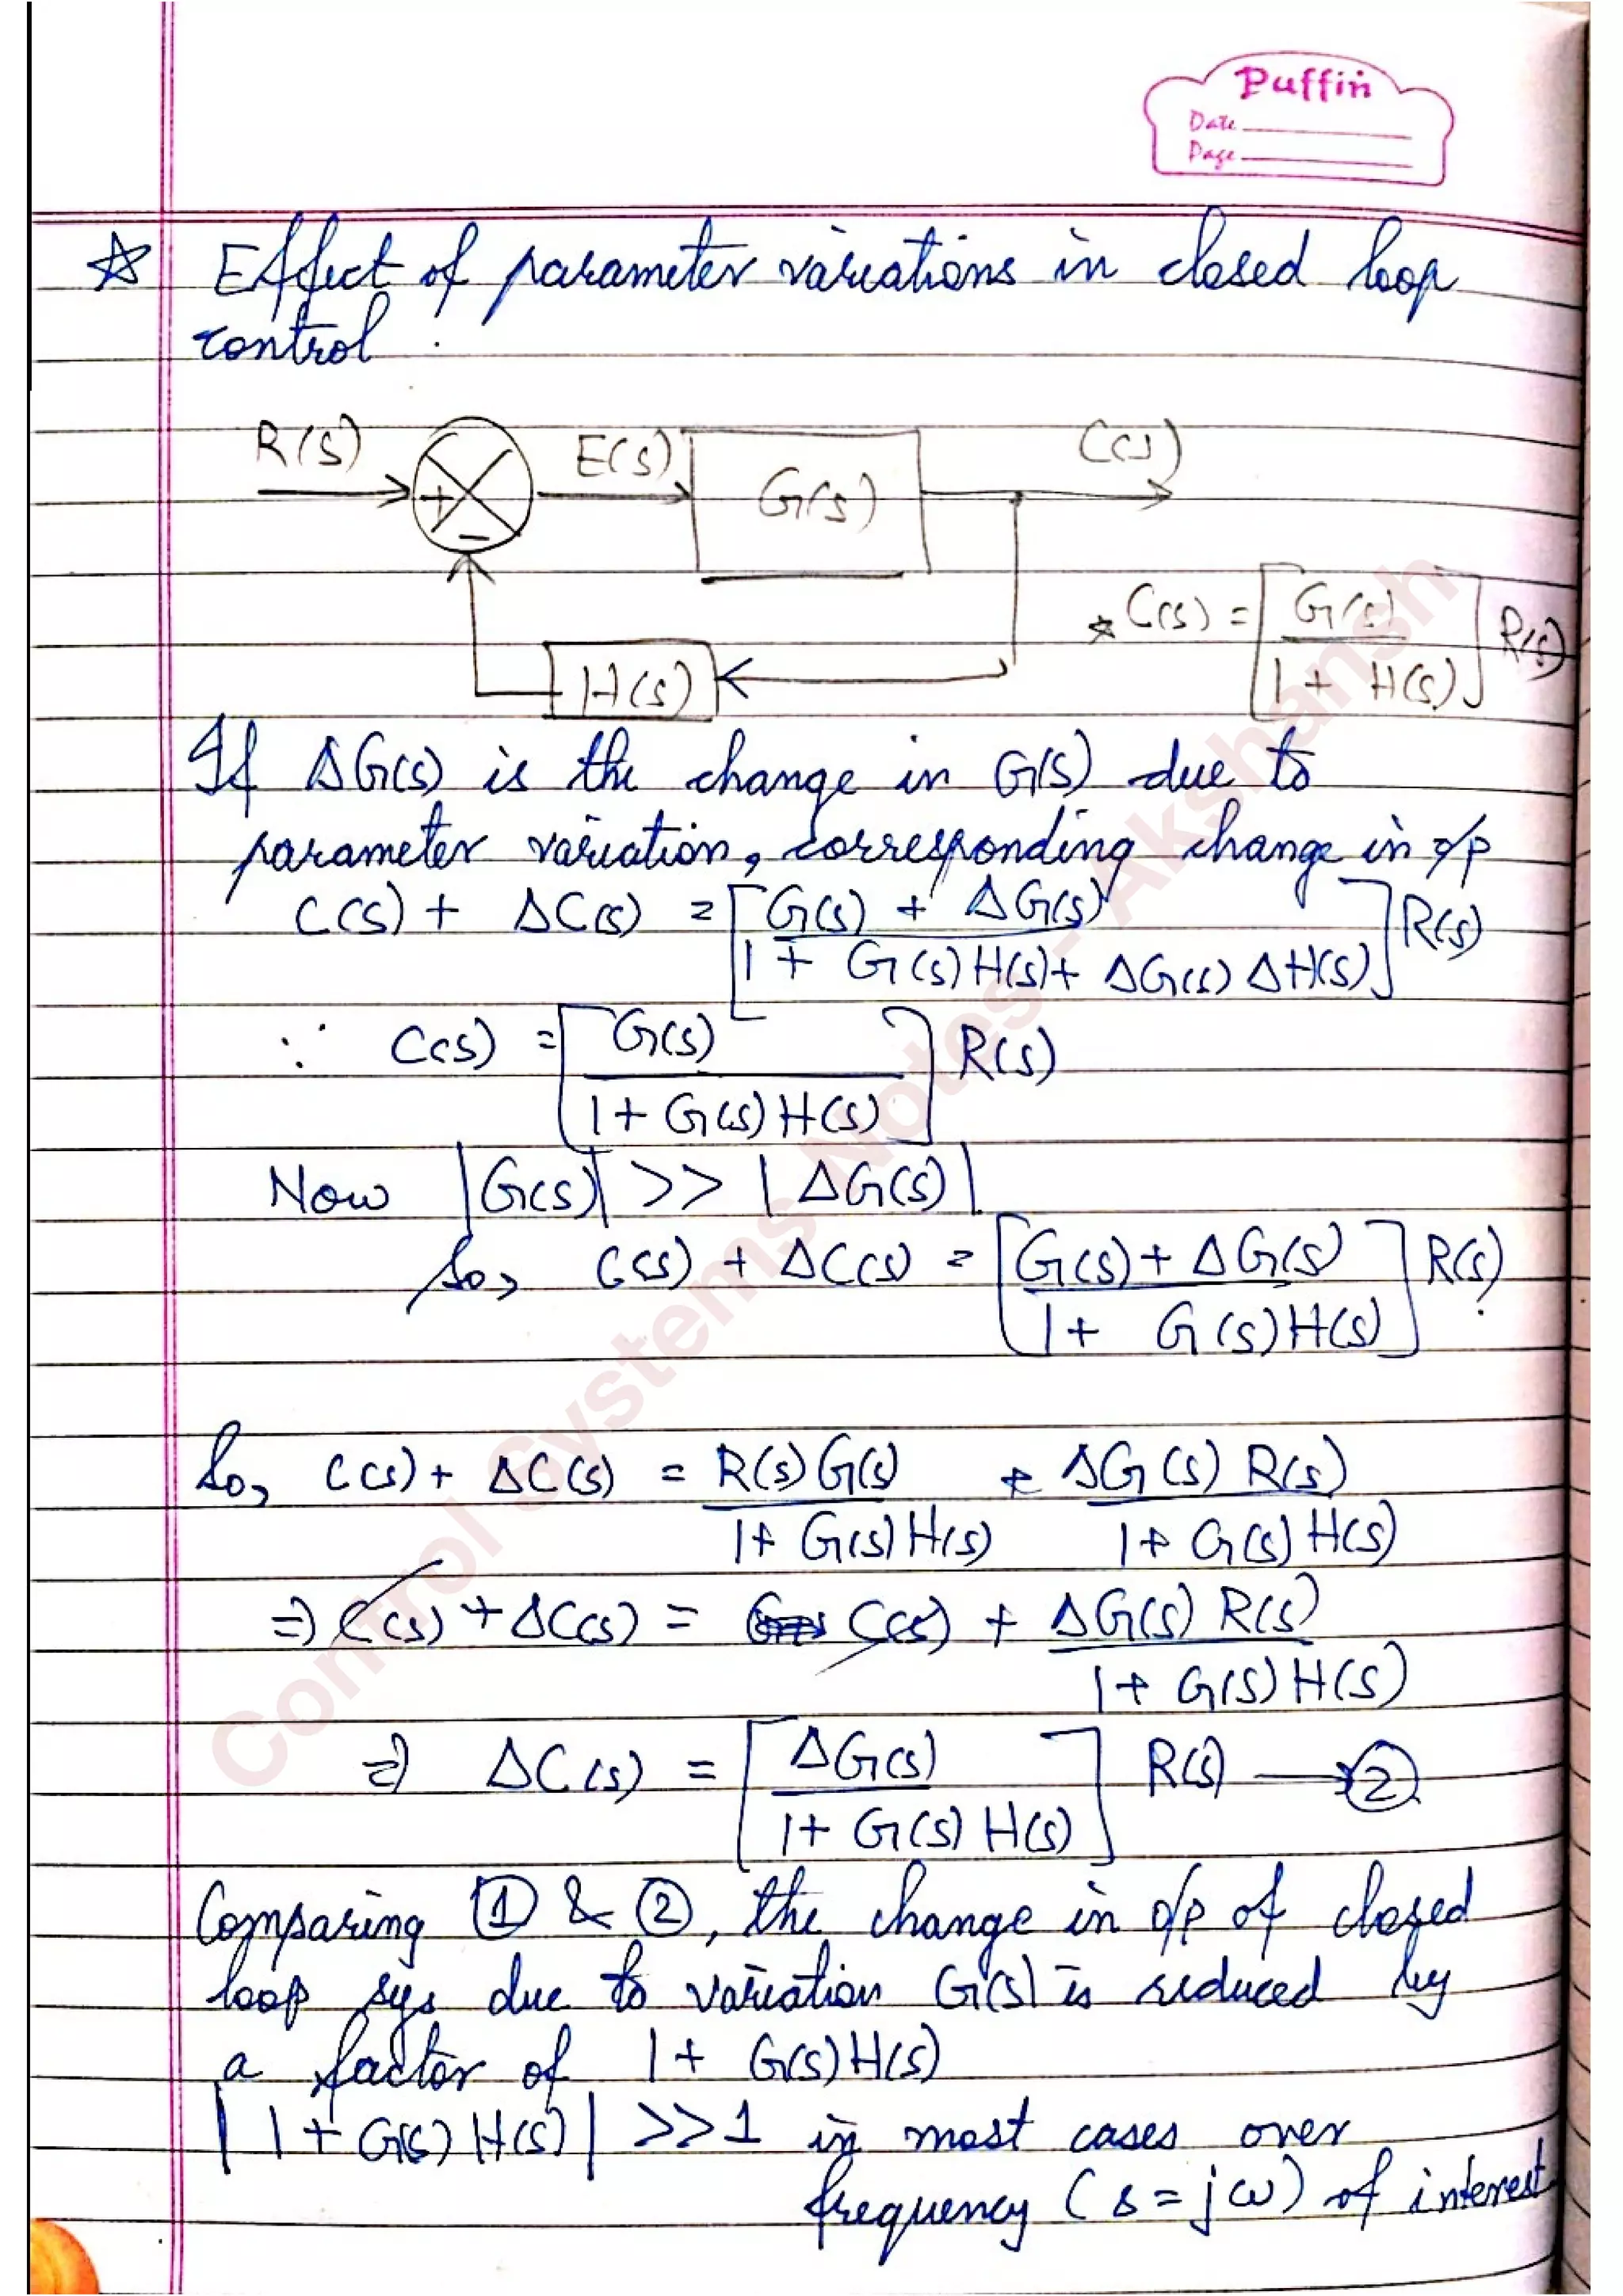 Puffin
Date
Page
☆ Effect of parameter variations in closed loop
control
R(s) E(s) G(s) C(s)
+
-
H(s)
* C(s) = [G(s) / 1 + H(s)] R(s)
If ΔG(s) is the change in G(s) due to
parameter variation, corresponding change in o/p
C(s) + ΔC(s) = [G(s) + ΔG(s) / 1 + G(s)H(s) + ΔG(s) ΔH(s)] R(s)
∵ C(s) = [G(s) / 1 + G(s)H(s)] R(s)
Now |G(s)| >> |ΔG(s)|
So, C(s) + ΔC(s) = [G(s) + ΔG(s) / 1 + G(s)H(s)] R(s)
So, C(s) + ΔC(s) = R(s)G(s) / 1 + G(s)H(s) + ΔG(s) R(s) / 1 + G(s)H(s)
⇒ C(s) + ΔC(s) = C(s) + ΔG(s) R(s) / 1 + G(s)H(s)
⇒ ΔC(s) = [ΔG(s) / 1 + G(s)H(s)] R(s) → ②
Comparing ① & ②, the change in o/p of closed
loop sys due to variation G(s) is reduced by
a factor of 1 + G(s)H(s)
|1 + G(s)H(s)| >>1 in most cases over
frequency (s = jω) of interest
Control Systems Notes - Akshansh